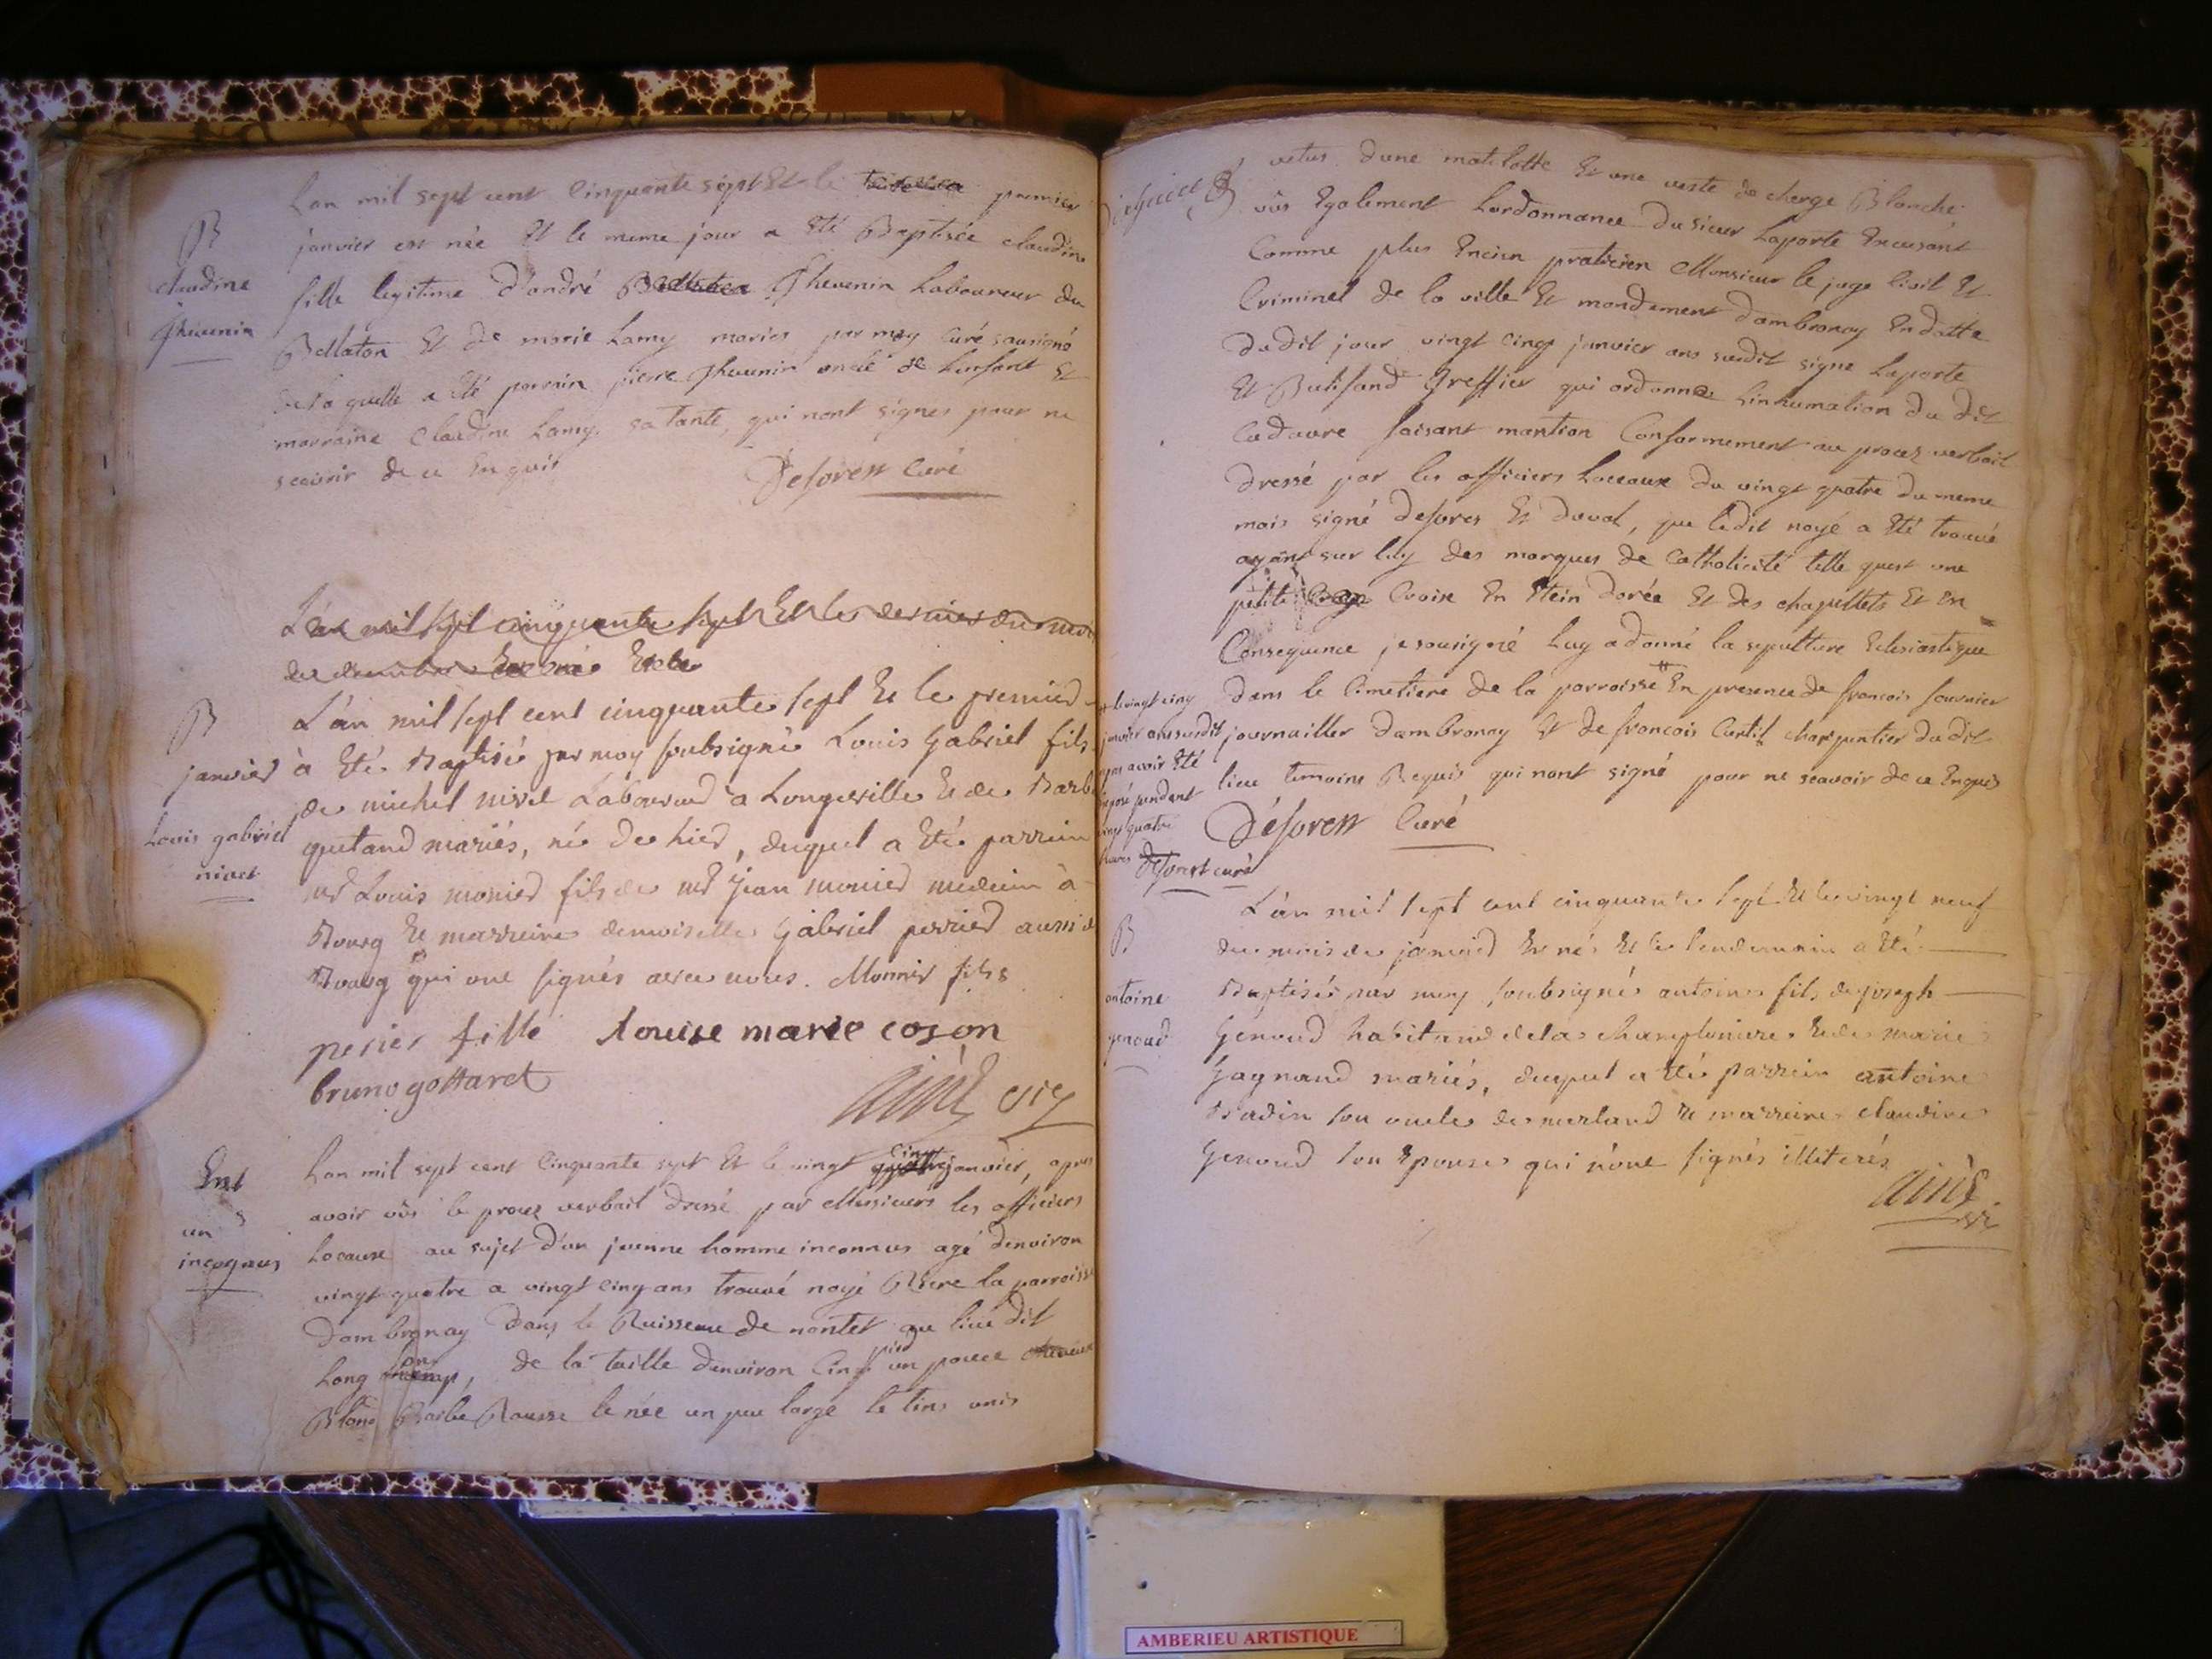 Lan mil sept cent Cinquante sept Et le premier
janvier est née Et le meme jour a Eté Baptisée claudine
fille legitime D'andré Thevenin Laboureur du
Bellaton Et de marie Lamy mariés par moy Curé sousigné
de la quelle a Eté parrain pierre Thevenin oncle de Lenfant Et
marraine Claudine Lamy sa tante, qui nont signés pour ne
scavoir de ce Enquis
Deforest Curé
B
claudine
Thevenin
L'an mil sept cinquante sept Et le dernier du mois
de decembre Est né Et le
L'an mil sept cent cinquante sept Et le premier
janvier à Eté Baptisé par moy soubsigné Louis Gabriel fils
de michel nivet Laboureur a Longeville Et de Barbe
gutand mariés, né de hier, duquel a Eté parrein
mr Louis monier fils de mr jean monier medecin à
Bourg Et marreine demoiselle Gabriel perrier aussi de
Bourg qui ont signés avec nous. Monnier fils
perier fille Louise marie coson
bruno gottaret
aimé viz
B
Louis gabriel
nivet
Lan mil sept cent Cinquante sept Et le vingt cinq janvier, apres
avoir vûs le procez verbail dressé par Messieurs les officiers
Locaux au sujet d'un jeunne homme inconnus agé denviron
vingt quatre a vingt cinq ans trouvé noyé Riere la parroisse
Dambronay Dans le Ruisseau de nantet au lieu dit
Long , de la taille denviron Cinq pied un pouce
Blond Barbe Rousse le née un peu large le tins unis
Ent
un
incognus
vetus dune matelotte Et une veste de cherge Blanche
vûs Egalement Lordonnance du sieur Laporte Excusant
Comme plus Encien praticien Monsieur le juge Civil Et
Criminel de la ville Et mandement dambronay En datte
dudit jour vingt cinq janvier ans susdit signe Laporte
Et Butifand Greffier qui ordonne Linhumation du dit
Cadavre faisant mantion Conformement au procez verbail
dressé par les officiers Loceaux du vingt quatre du meme
mois signé Defores Et Duval, que ledit noyé a Eté trouvé
ayant sur luy des marques de Catholicité telle quest une
petite Croix En Etein dorée Et des chapellets Et En
Consequence je sousigné Luy a donné la sepulture Eclesiastique
dans le Cimetiere de la parroisse En presence de francois fournier
journailler dambronay Et de francois Curtil charpentier dudit
lieu temoins Requis qui nont signé pour ne scavoir de ce Enquis
Déforest Curé
le vingt cinq
janvier ans susdit
apres avoir Eté
Exposé pendant
vingt quatre
heures
Deforest curé
L'an mil sept cent cinquante sept Et le vingt neuf
du mois de janvier Est né Et le lendemain a Eté
Baptisé par moy soubsigné antoine fils de joseph
Genoud habitand de la Championiere Et de marie
Gagnand mariés, duquel a Eté parrein antoine
Badin son oncle de merland Et marreine claudine
Genoud son Epouse qui n'ont signés illiterés
aimé
viz
B
antoine
genoud
AMBERIEU ARTISTIQUE